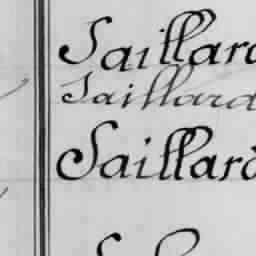 Saillard
Saillard
Saillard